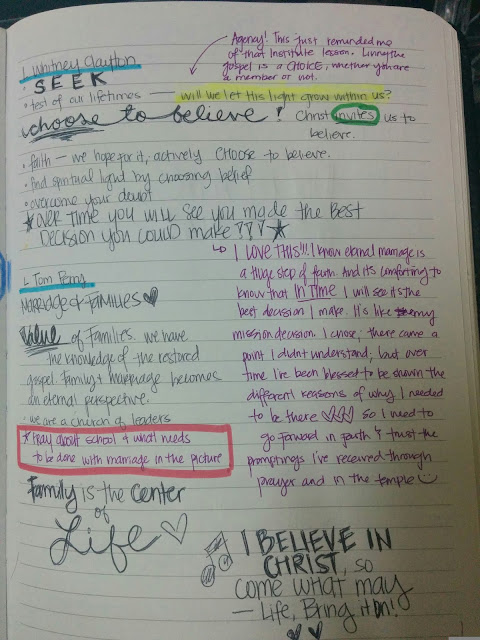 Agency! This just reminded me
of that Institute lesson. Living the
gospel is a CHOICE, whether you are
a member or not.
L. Whitney Clayton
• SEEK
• test of our lifetimes — will we let this light grow within us?
choose to believe! Christ invites us to
believe.
• faith — we hope for it, actively CHOOSE to believe.
• find spiritual light by choosing belief
• overcome your doubt
★ OVER TIME YOU WILL SEE YOU MADE THE BEST
DECISION YOU COULD MAKE!!! ★
↳ I LOVE THIS!!! I know eternal marriage is
a huge step of faith. And it's comforting to
know that IN TIME I will see it's the
best decision I make. It's like my
mission decision. I chose, there came a
point I didn't understand, but over
time I've been blessed to be shown the
different reasons of why I needed
to be there ♡♡♡ so I need to
go forward in faith & trust the
promptings I've received through
prayer and in the temple ☺
L. Tom Perry
MARRIAGE & FAMILIES ♥
Value of Families. we have
the knowledge of the restored
gospel. family & marriage becomes
an eternal perspective.
• we are a church of leaders
* Pray about school & what needs
to be done with marriage in the picture
Family is the center
of
Life ♡
♫ I BELIEVE IN
CHRIST, so
come what may
— Life, Bring it On!
♥ ♥